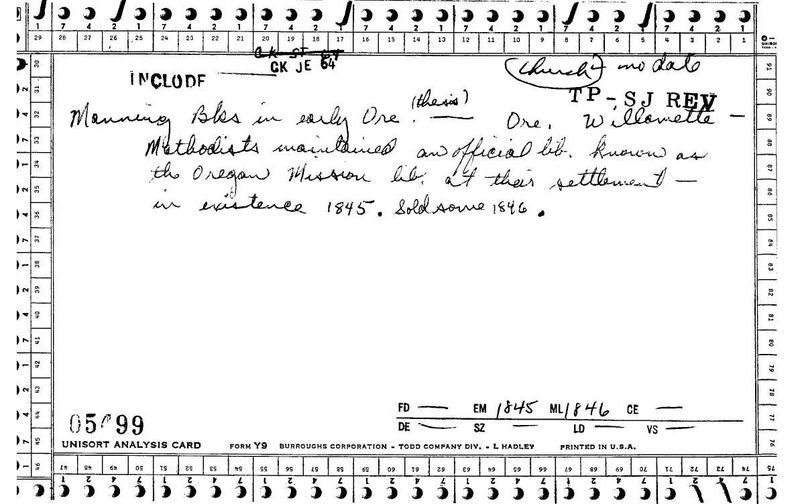 INCLUDE
CK ST 64
CK JE 64
(Church) - no date
TP-SJ REV
Manning Bks in early Ore. (thesis) — Ore. Willamette —
Methodists maintained an official lib. known as
the Oregon Mission lib. at their settlement —
in existence 1845. Sold some 1846.
FD — EM 1845 ML 1846 CE —
DE — SZ — LD — VS —
05 99
UNISORT ANALYSIS CARD FORM Y9 BURROUGHS CORPORATION - TODD COMPANY DIV. - I. HADLEY PRINTED IN U.S.A.